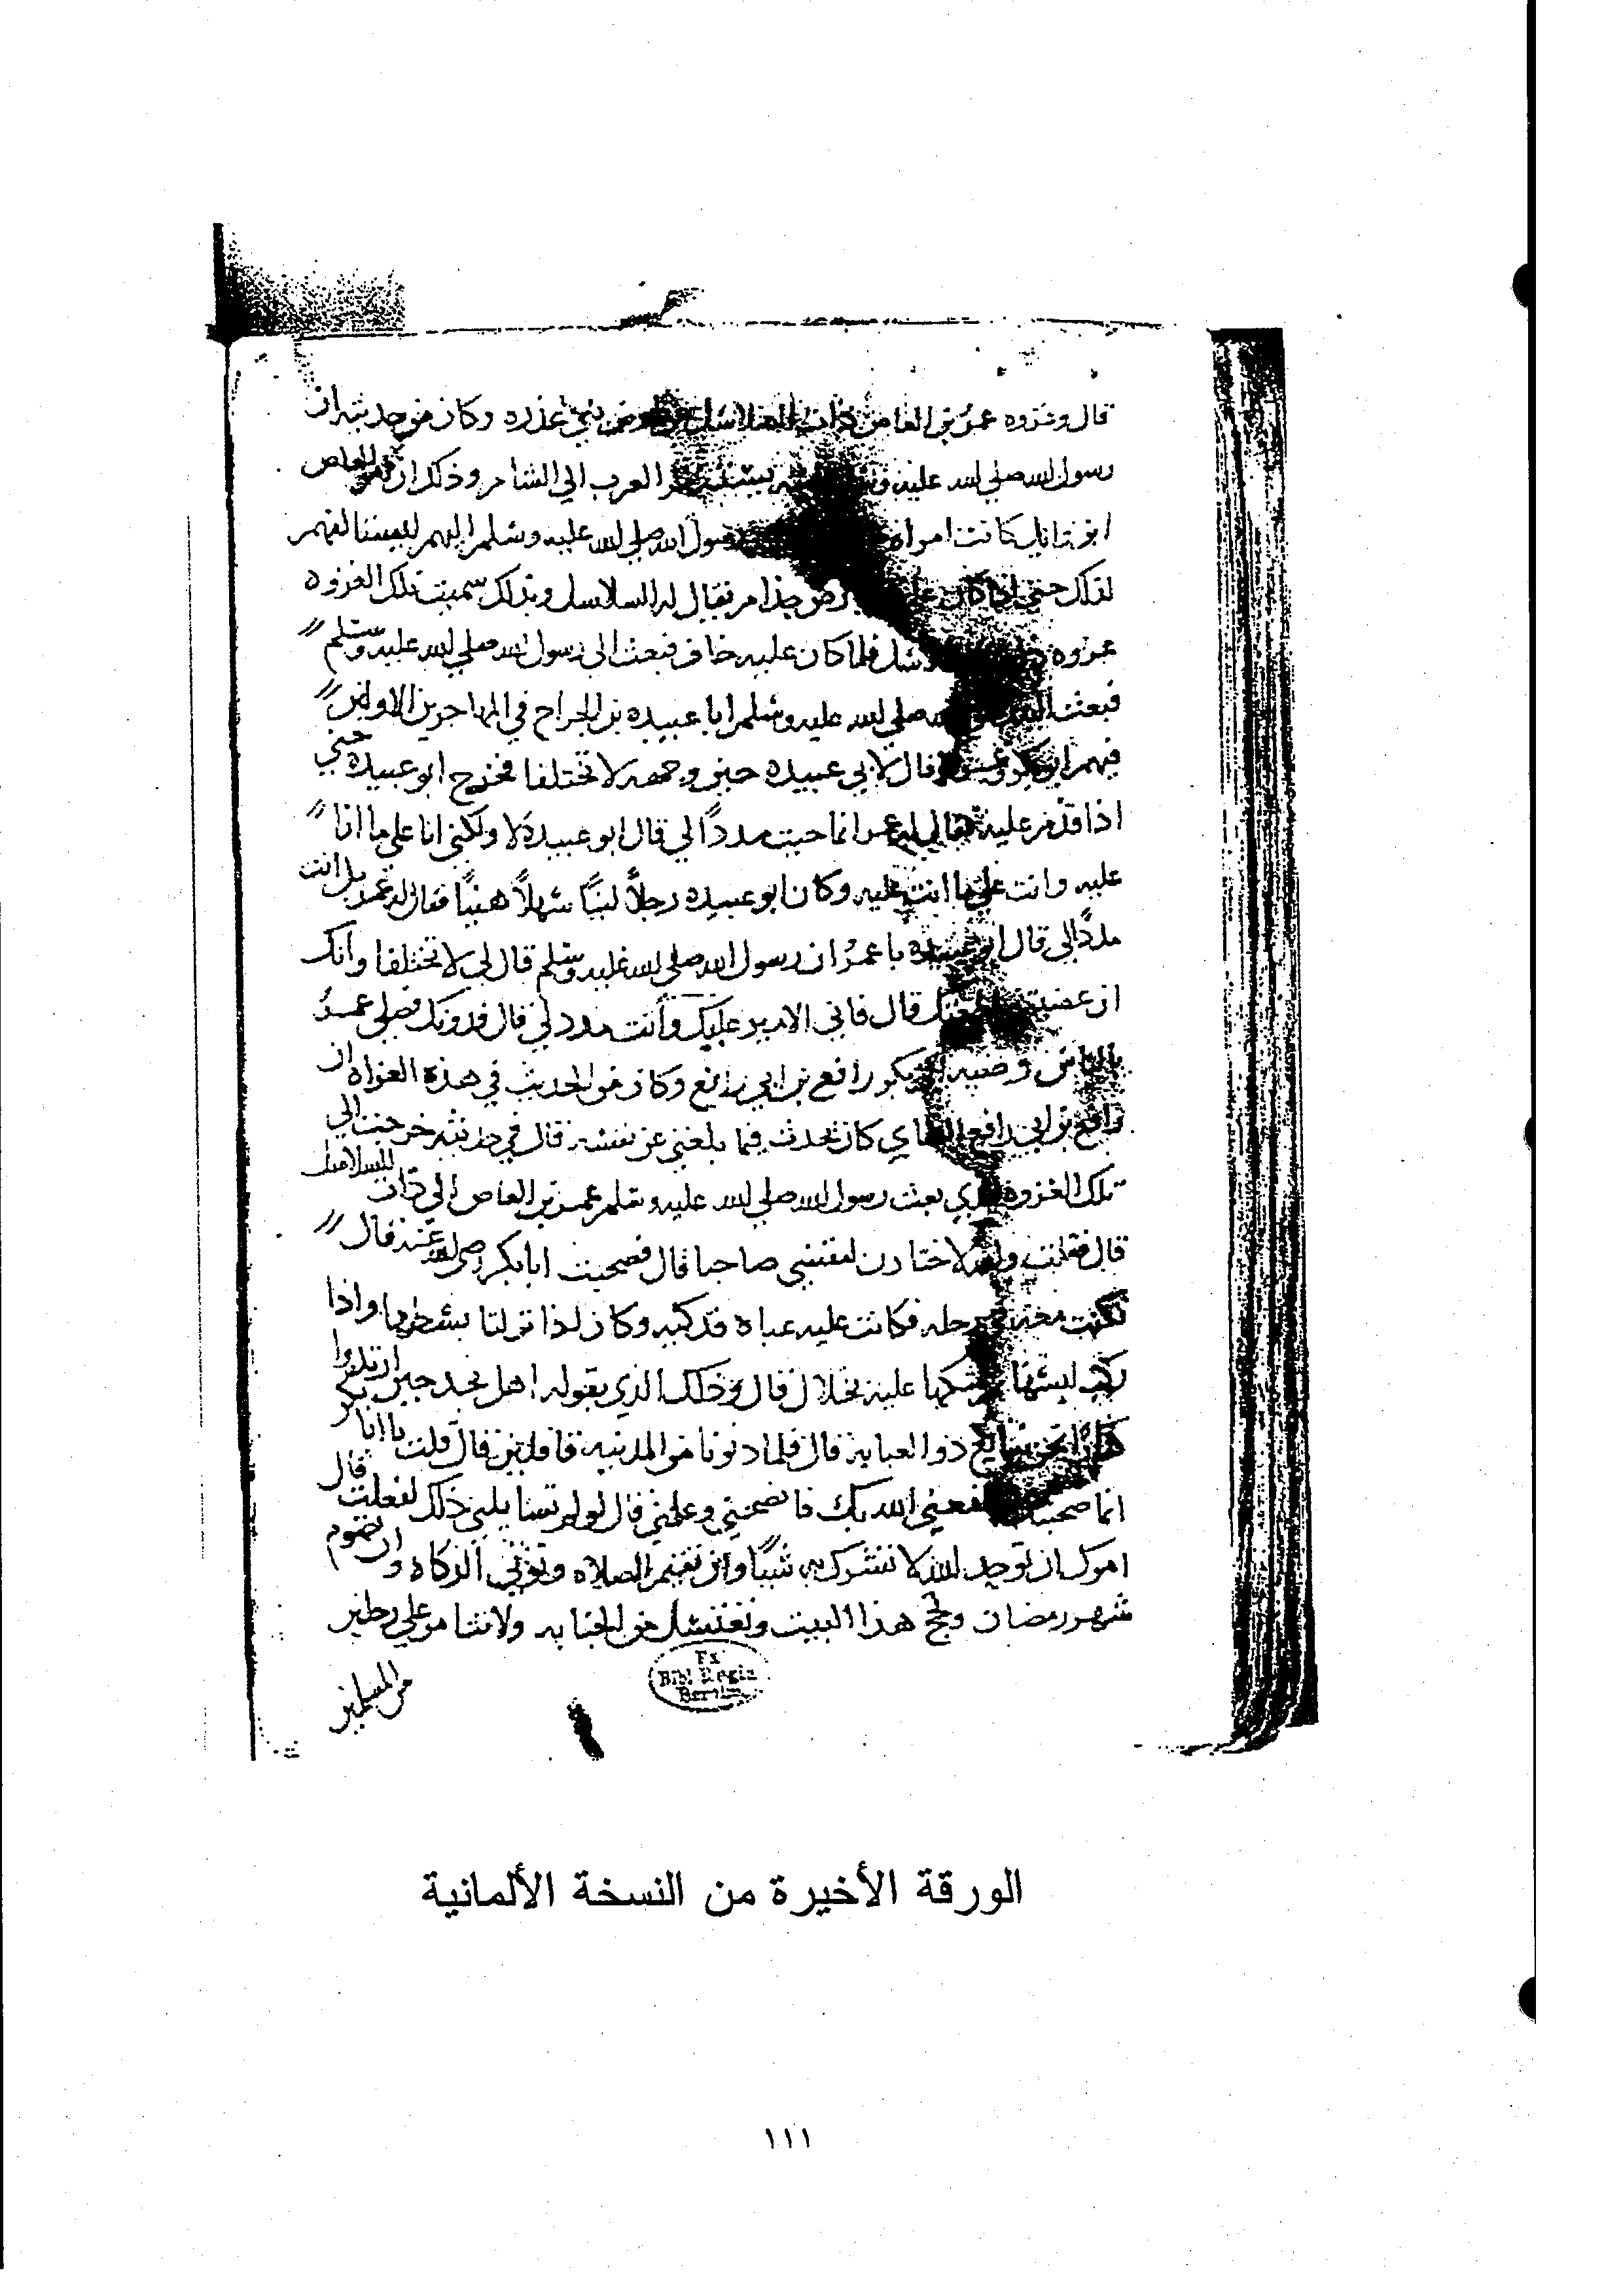 قال وغزوه عمرو بن العاص ذات السلاسل من ارض بني عذره وكان من حديثه ان
رسول الله صلي الله عليه العرب الي الشام وذلك ان العاص
ابن وايل كانت امراه رسول الله صلي الله عليه وسلم اليهم
لذلك حتي اذا كان علي ارض جذام يقال له السلاسل وبذلك سميت تلك الغزوه
غزوه فلما كان عليه خاف فبعث الي رسول الله صلي الله عليه وسلم
فبعث صلي الله عليه وسلم ابا عبيده بن الجراح في المهاجرين الاولين
فيهم ابو بكر وعمر وقال لابي عبيده حين وجهه لا تختلفا فخرج ابو عبيده حتي
اذا قدم عليه قال له عمرو انما جيت مددًا لي قال ابو عبيده لا ولكني انا علي ما انا
عليه وانت علي ما انت عليه وكان ابو عبيده رجلاً لينًا سهلاً هينًا فقال له عمرو بل انت
مددًا لي قال ابو عبيده يا عمرو ان رسول الله صلي الله عليه وسلم قال لي لا تختلفا وانك
ان قال فاني الامير عليك وانت مدد لي قال فدونك فصلي عمرو
بالناس وصحب ابو بكر رافع بن ابي رافع وكان من الحديث في هذه الغزاه ان
رافع بن ابي رافع الطاي كان يحدث فيما بلغني عن نفسه قال في حديثه خرجت الي
تلك الغزوه الذي بعث رسول الله صلي الله عليه وسلم عمرو بن العاص الي ذات السلاسل
قال فقلت والله لاختارن لنفسي صاحبا قال فصحبت ابا بكر رضي الله عنه قال
فكنت معه في رحله فكانت عليه عباه فدكيه وكان اذا نزلنا بسطها واذا
ركب لبسها وشكها عليه بخلال قال وذلك الذي يقوله اهل نجد حين ارتدوا
نحن نبايع ذو العبايه قال فلما دنونا من المدينه قافلين قال قلت يا ابا بكر
انما صحبتك لينفعني الله بك فانصحني وعلمني قال لو لم تسايلني ذلك لفعلت قال
امرك ان توحد الله لا تشرك به شيًا وان تقيم الصلاه وتوتي الزكاه وان تصوم
شهر رمضان وتحج هذا البيت وتغتسل من الجنابه ولا تتامر علي رجلين
من المسلمين
Ex
Bibl. Regia
Berolin.
الورقة الأخيرة من النسخة الألمانية
١١١